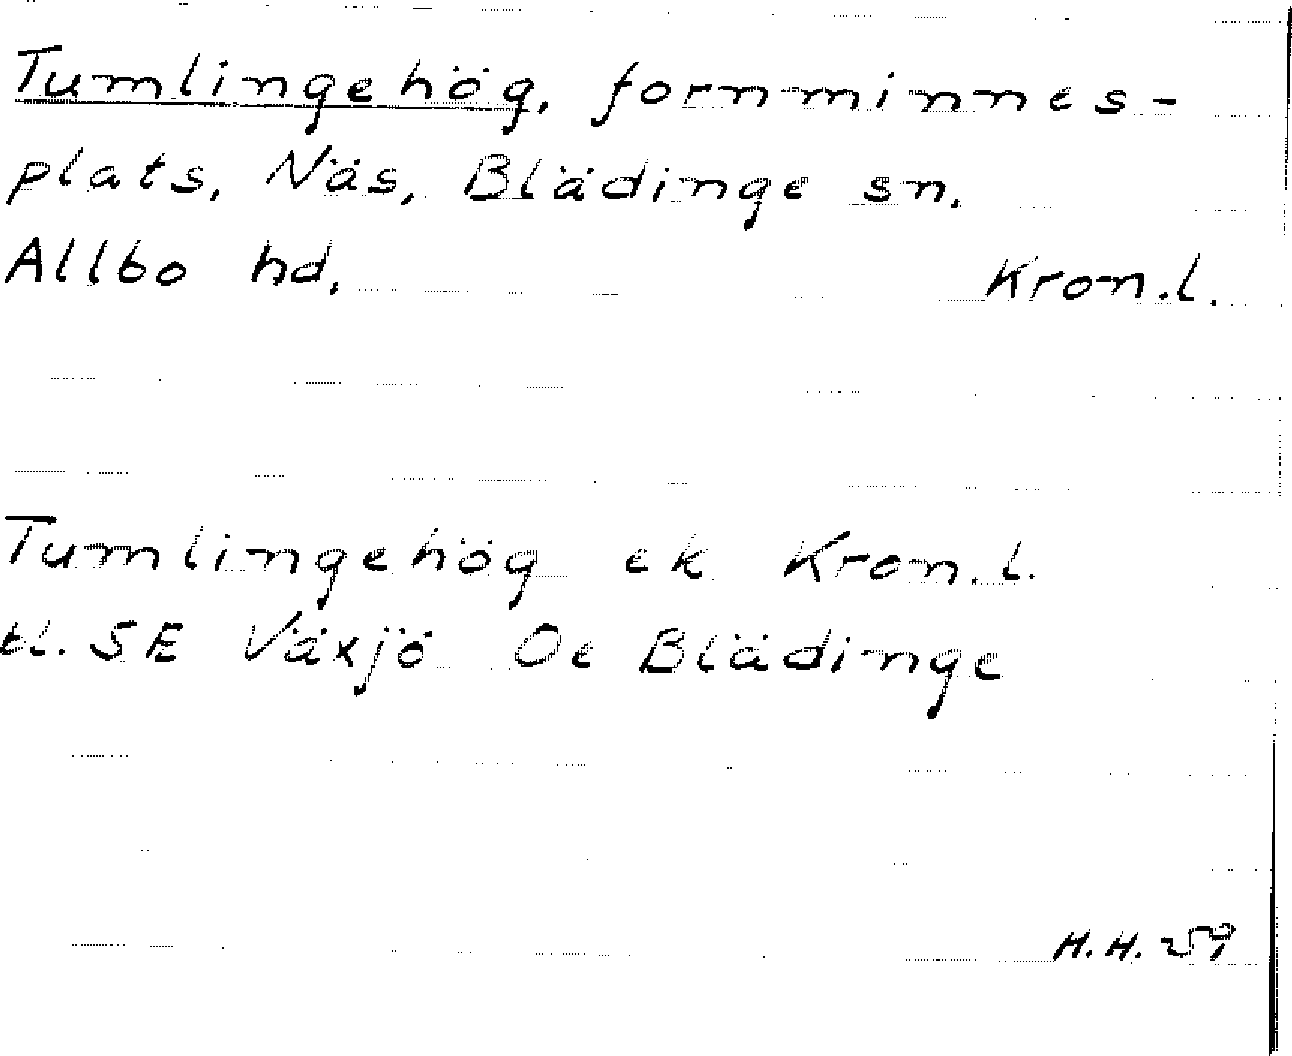 Tumlingehög, fornminnes-
plats, Näs, Blädinge sn.
Allbo hd. Kron.l.
Tumlingehög ek Kron.l.
tl. SE Växjö Oe Blädinge
H.H. 59